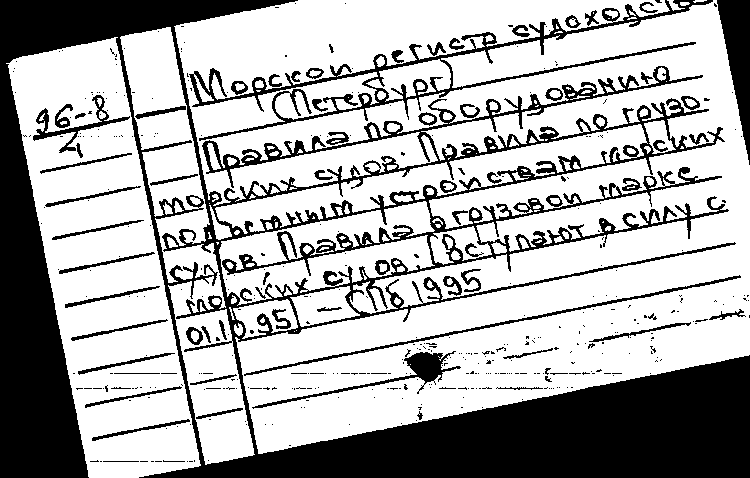 96-8
4
Морской регистр судоходства
(Петербург)
Правила по оборудованию
морских судов; Правила по грузо-
подъемным устройствам морских
судов. Правила о грузовой марке
морских судов: [Вступают в силу с
01.10.95]. – СПб, 1995